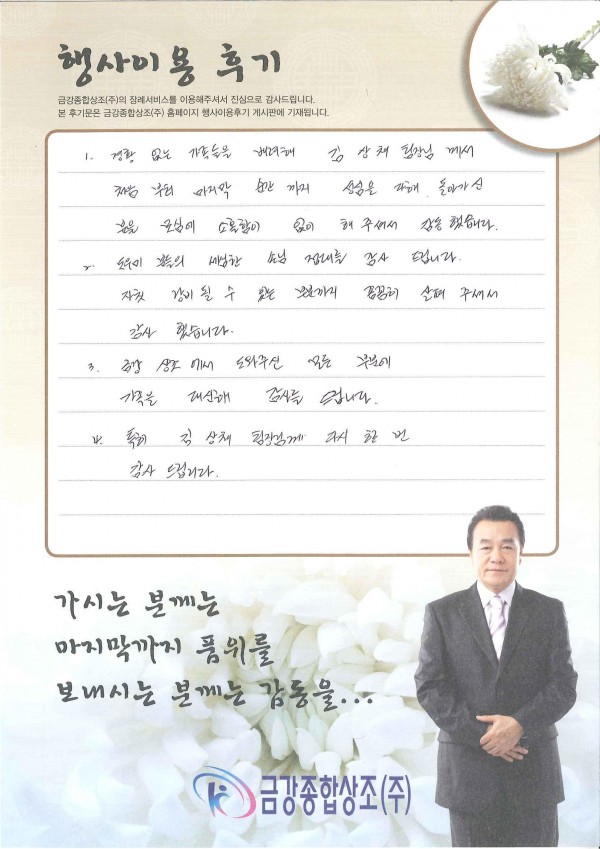 행사이용 후기
금강종합상조(주)의 장례서비스를 이용해주셔서 진심으로 감사드립니다.
본 후기문은 금강종합상조(주) 홈페이지 행사이용후기 게시판에 기재됩니다.
1. 경황 없는 가족들을 배려해 김상채 팀장님 께서
처음 부터 마지막 순간 까지 성심을 다해 돌아가신
분을 모심에 소홀함이 없이 해 주셔서 감동했습니다.
2. 도우미 분들의 세심한 손님 접대를 감사 드립니다.
자칫 결비 될 수 있는 부분까지 꼼꼼히 살펴 주셔서
감사 했습니다.
3. 금강 상조에서 도와주신 모든 부분에
가족을 대신해 감사를 드립니다.
4. 특히 김상채 팀장님께 다시 한 번
감사 드립니다.
가시는 분께는
마지막까지 품위를
보내시는 분께는 감동을...
금강종합상조(주)